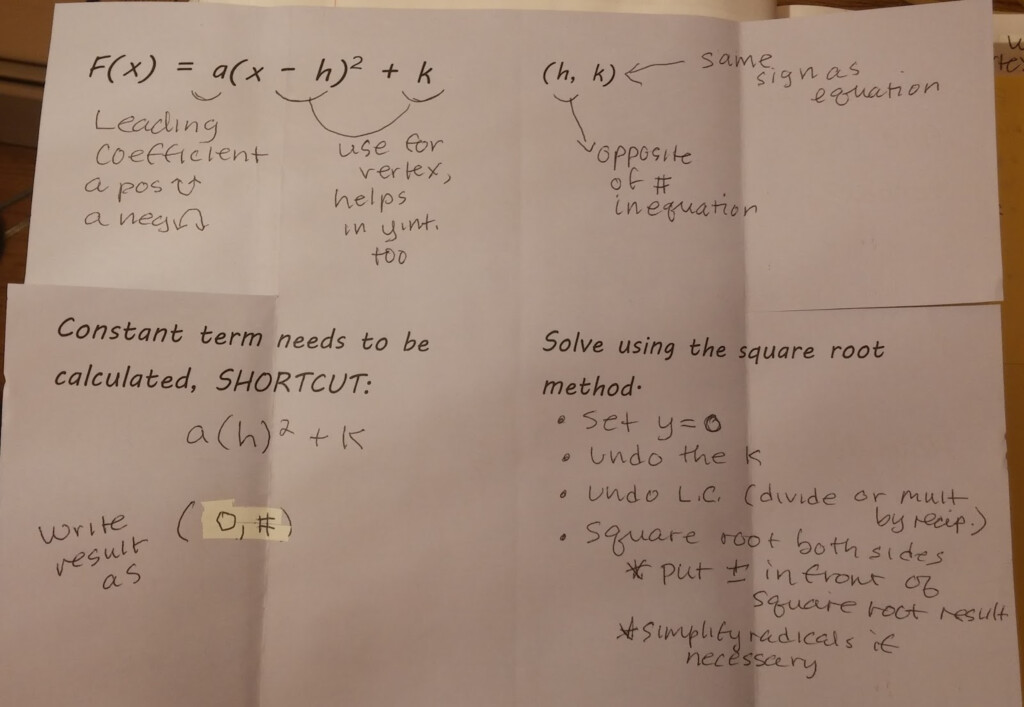 F(x) = a(x - h)² + k
Leading
coefficient
a pos
a neg
use for
vertex,
helps
in yint.
too
(h, k) ← same
sign as
equation
opposite
of #
in equation
Constant term needs to be
calculated, SHORTCUT:
a(h)² + k
write
result
as
(0, #)
Solve using the square root
method.
• Set y=0
• Undo the k
• Undo L.C. (divide or mult
by recip.)
• Square root both sides
* put ± in front of
square root result
* simplify radicals if
necessary